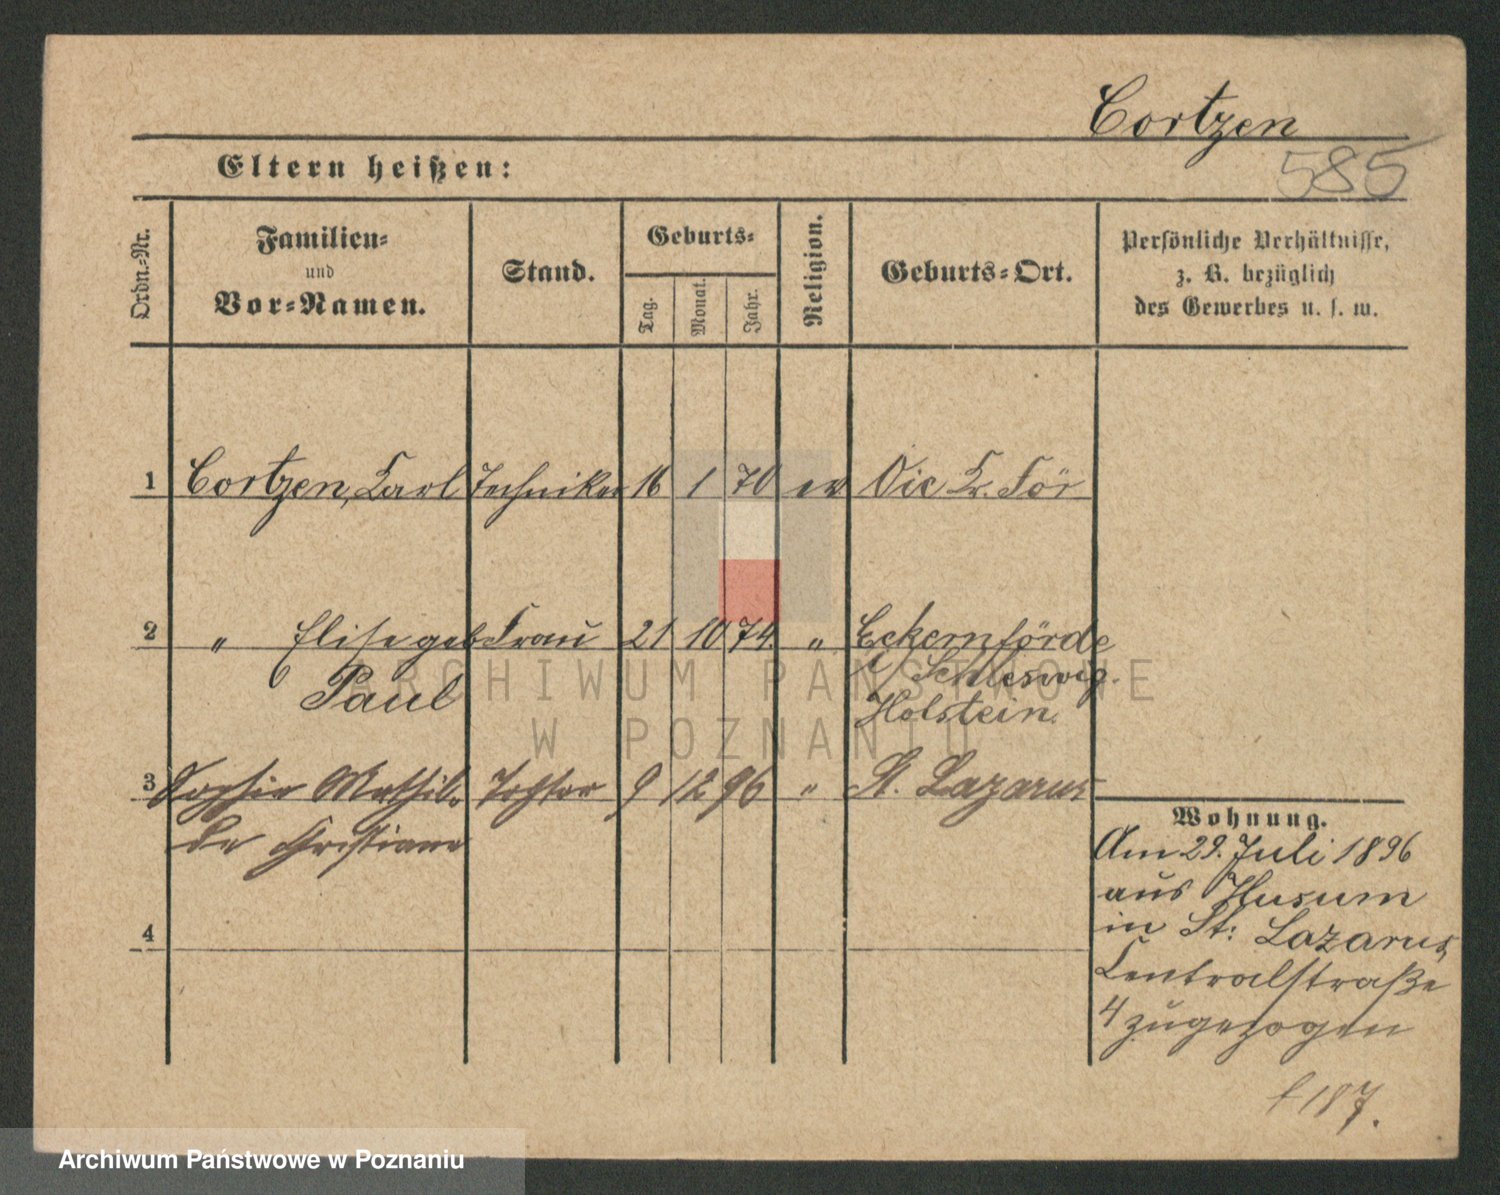 Cortzen
585
Eltern heißen:
Ordn.-Nr.
Familien-
und
Vor-Namen.
Stand.
Geburts-
Tag.
Monat.
Jahr.
Religion.
Geburts-Ort.
Persönliche Verhältnisse,
z. B. bezüglich
des Gewerbes u. s. w.
1 Cortzen, Carl Techniker 16 1 70 ev Oie Kr. För
2 " Elise geb Frau 21 10 74. " Eckernförde
Paul
i/ Schleswig.
Holstein.
3 Sophie Mathil- Tochter 9 12 96 " St. Lazarus
de Christiane
4
Wohnung.
Am 29. Juli 1896
aus Husum
in St: Lazarus,
Centralstraße
4 zugezogen
f 187.
ARCHIWUM PAŃSTWOWE
W POZNANIU
Archiwum Państwowe w Poznaniu